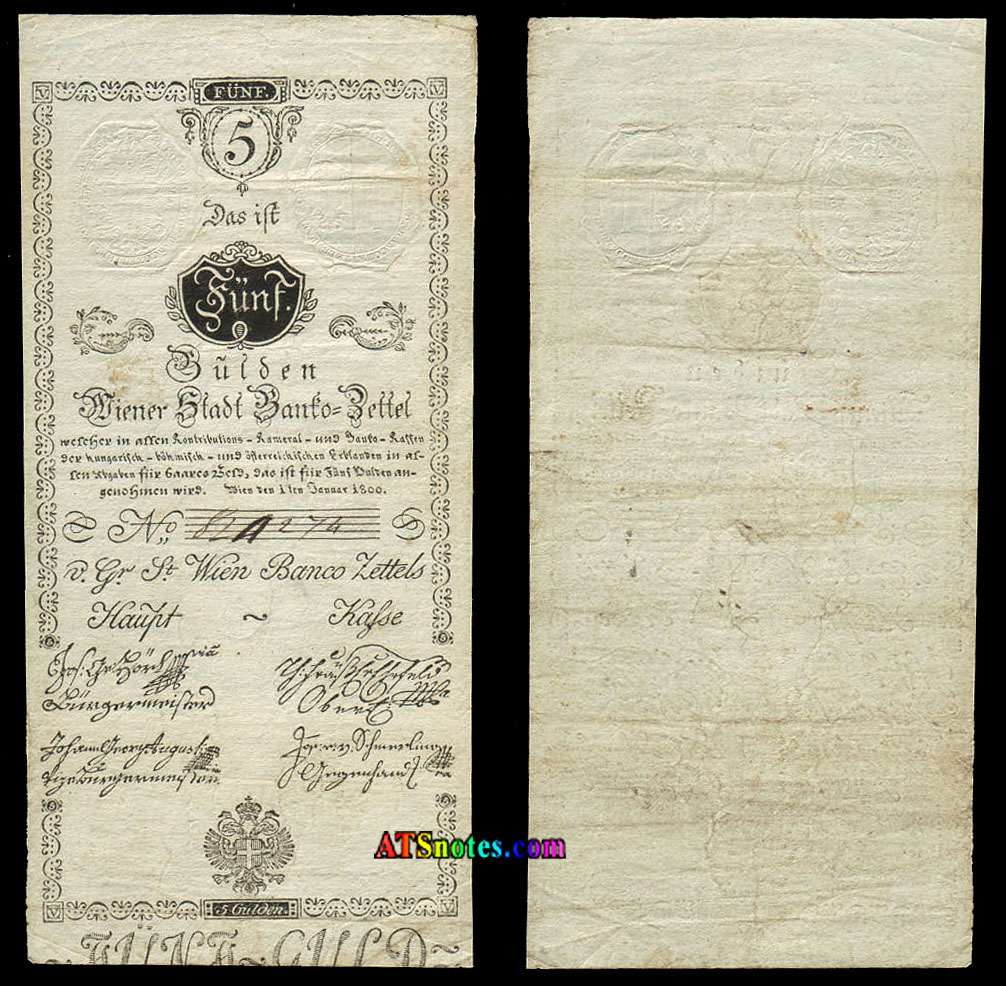 V FÜNF. V
5
Das ist
Fünf.
Gulden
Wiener Stadt Banko=Zettel
welcher in allen Kontributions - Kameral - und Banko - Kassen
der hungarisch - böhmisch - und österreichischen Erblanden in al-
len Abgaben für baares Geld, das ist für Fünf Gulden an-
genohmen wird. Wien den 1ten Januar 1800.
No 274
v. Gr St Wien Banco Zettels
Haupt ~ Kasse
Bürgermeister
Johann Georg August
Vizebürgermeister
V 5 Gulden. V
FÜNF~GULD~
ATSnotes.com